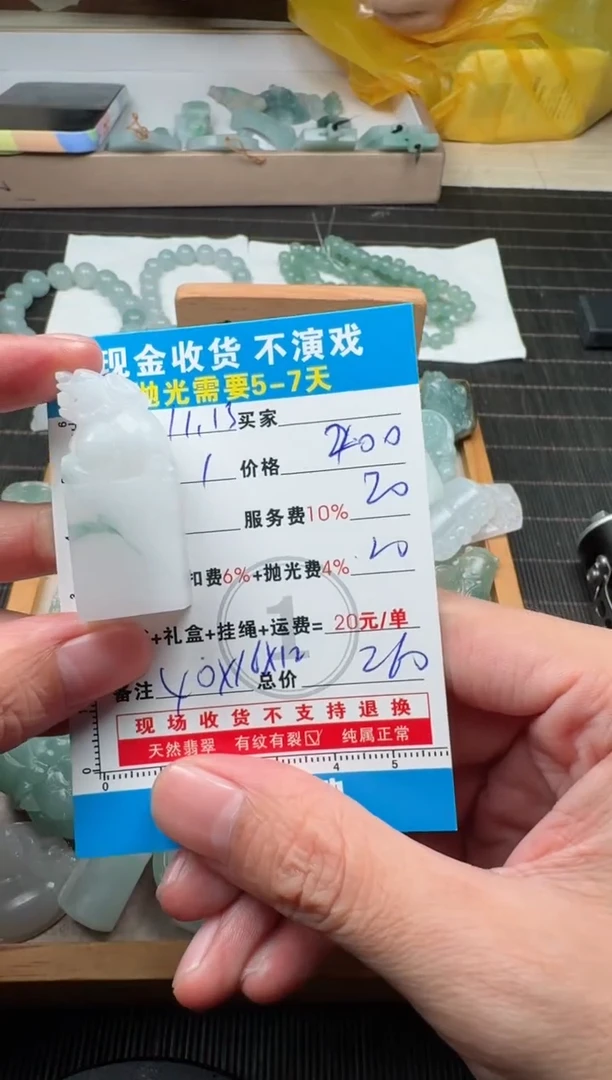 现金收货 不演戏
抛光需要5-7天
11.13 买家
1 价格 200
服务费10% 20
扣费6%+抛光费4% 20
+礼盒+挂绳+运费= 20元/单
备注 40X16X12 总价 260
现场收货不支持退换
天然翡翠 有纹有裂☑ 纯属正常
0 4 5